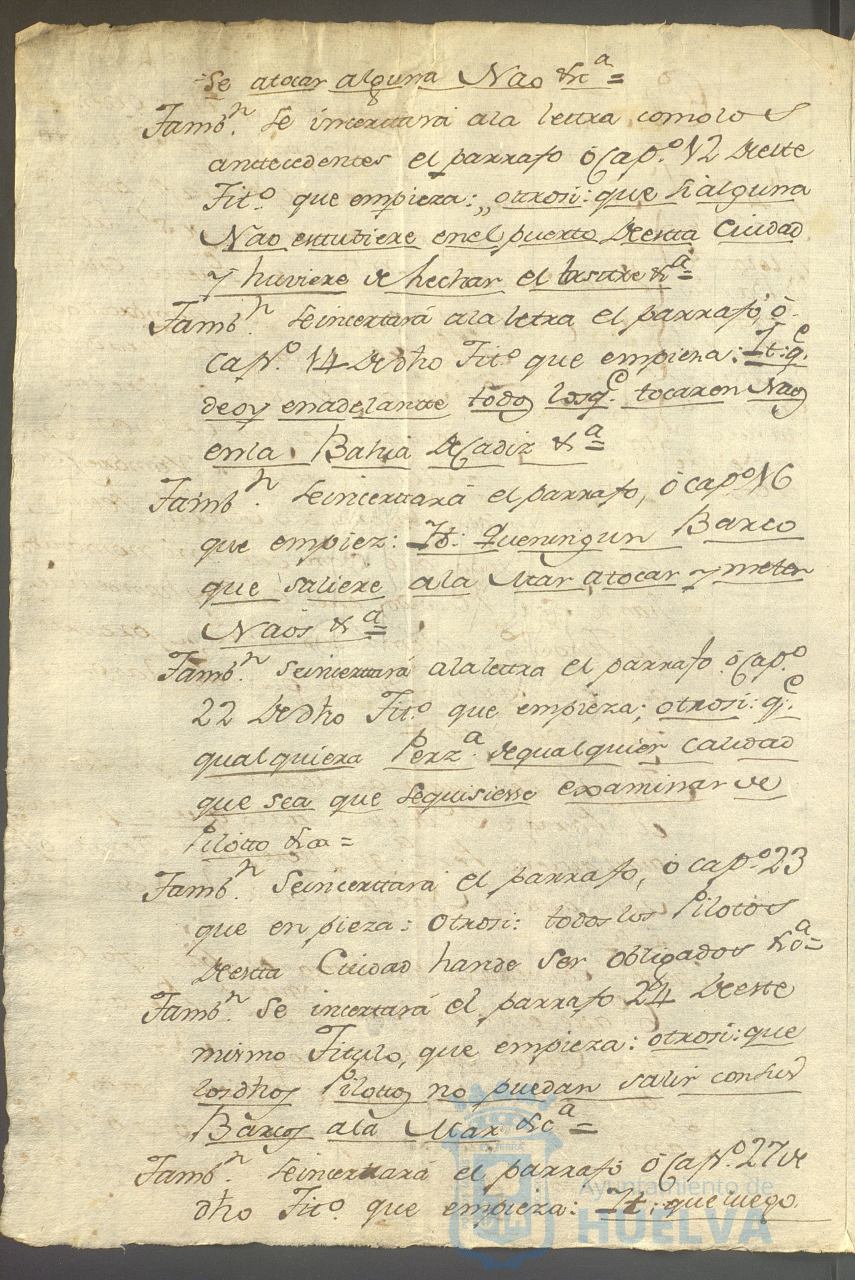 se atocar alguna Nao &cª =
Tambⁿ. se incertará ala lettra como los
antecedentes el parrafo ó Cap.º 12 Deeste
Titº. que empieza: „otrosi: que si alguna
Nao estubiere enel puerto Deesta Ciudad
y huviere de hechar el lastre &ª =
Tambⁿ. seincertará ala letra el parrafo, ó
CapNº. 14 Dedho Titº que empieza: It: qᵉ.
deoy enadelantte todos losqᵉ. tocaren Naos
enla Bahia DeCadiz &ª =
Tambⁿ. seincertará el parrafo, ó capº 16
que empiez: It: Queningun Barco
que saliere ala Mar atocar y meter
Naos &ª =
Tambⁿ. seincertará alaletra el parrafo ó Cap.º
22 Dedho Titº que empieza; otrosi: qᵉ.
qualquiera Perzª. dequalquier calidad
que sea que sequisiesse examinar de
Pilotto &cª =
Tambⁿ. Seincertará el parrafo, ó cap.º 23
que enpieza: Otrosi: todos los Pilotos
Deesta Ciudad hande ser obligados &cª =
Tambⁿ. se incertará el parrafo 24 Deeste
mismo Titulo, que empieza: otrosi: que
losdhos Pilottos no puedan salir consus
Barcos ala Mar &cª =
Tambⁿ. seincertara el parrafo ó CapNº. 27 de
dho Titº. que empieza: It: que luego
Ayuntamiento de
HUELVA